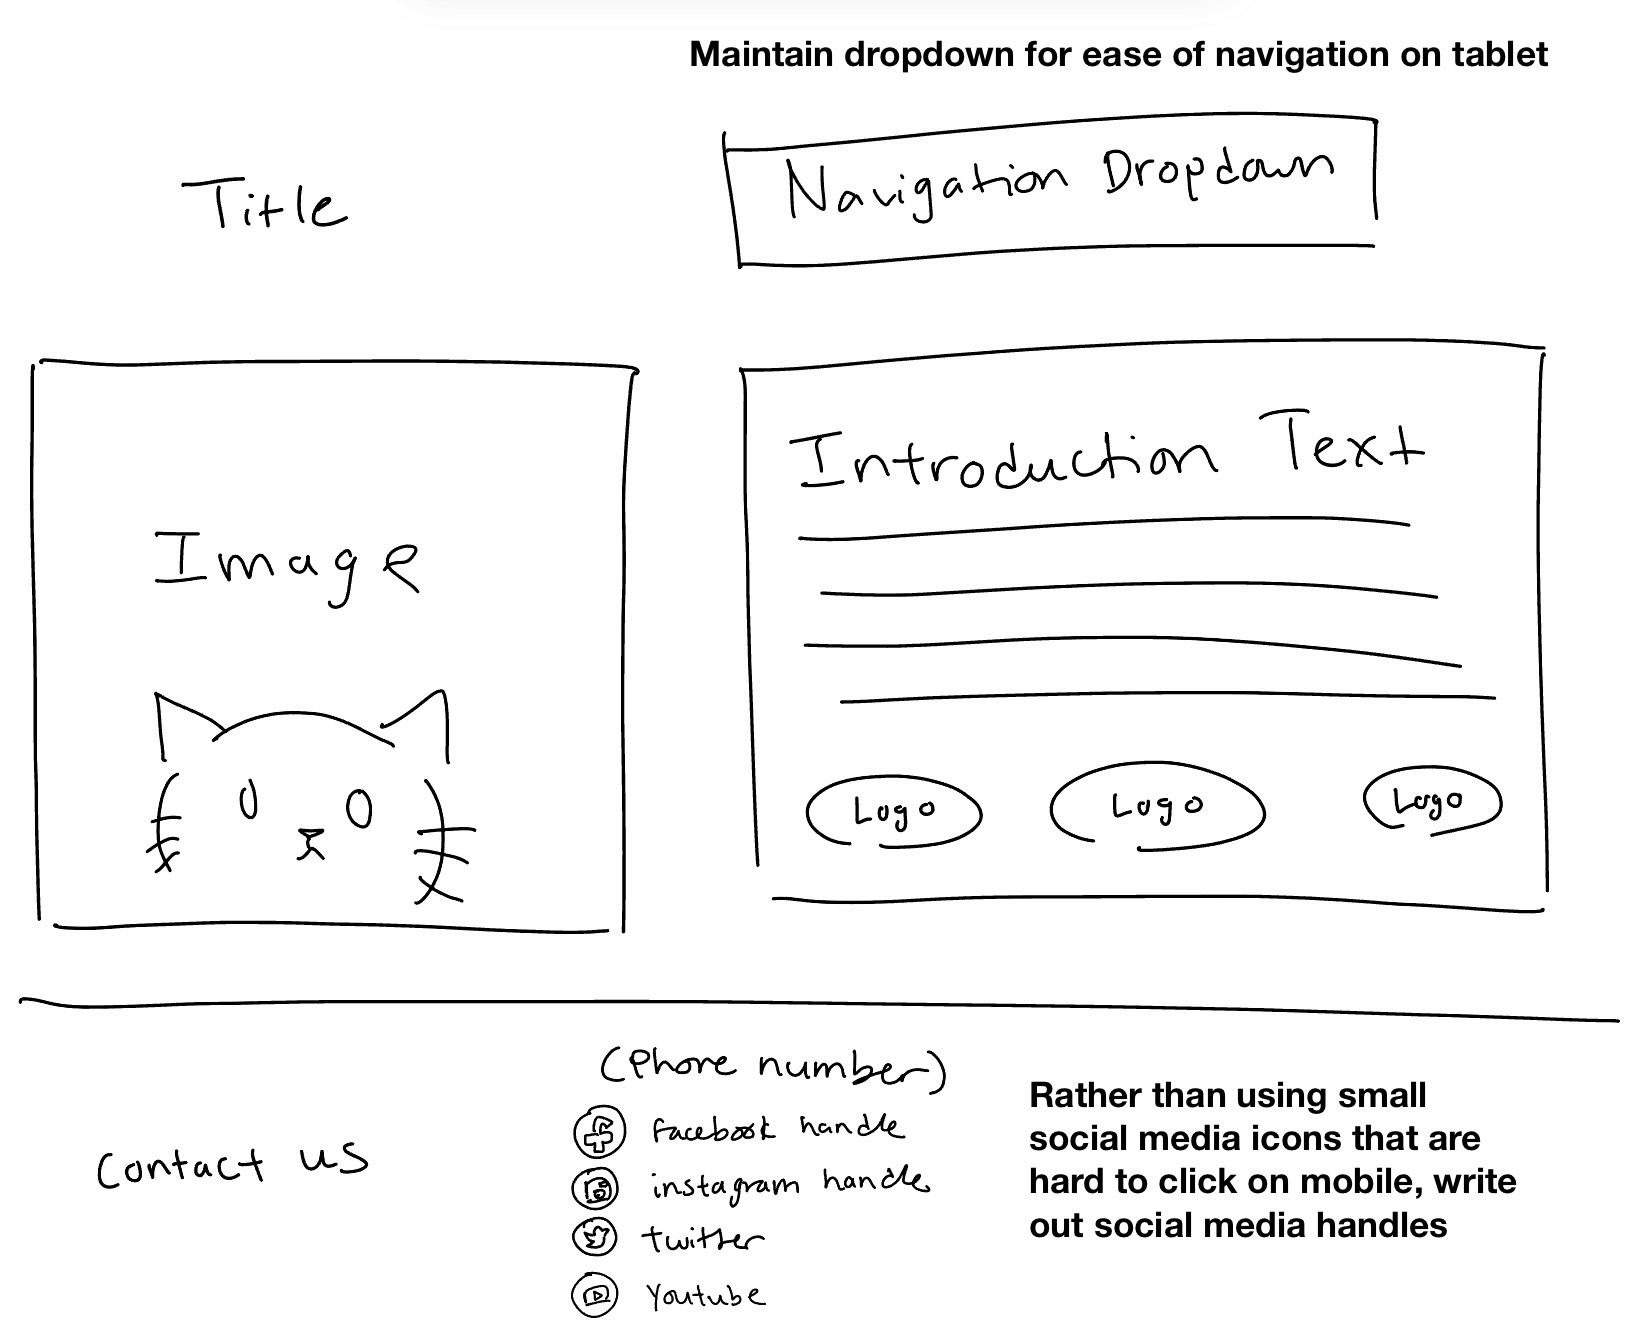 Maintain dropdown for ease of navigation on tablet
Title
Navigation Dropdown
Image
Introduction Text
Logo
Logo
Logo
Contact us
(Phone number)
facebook handle
instagram handle
twitter
Youtube
Rather than using small
social media icons that are
hard to click on mobile, write
out social media handles